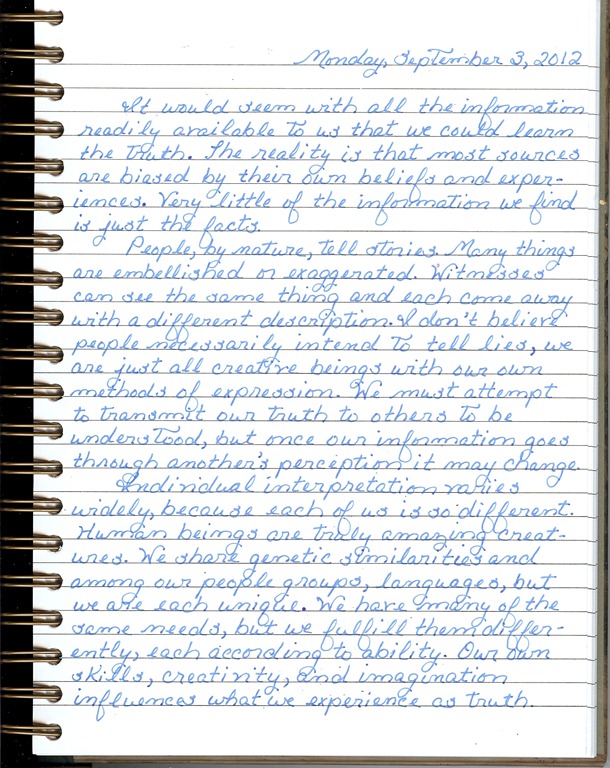 Monday, September 3, 2012
It would seem with all the information
readily available to us that we could learn
the truth. The reality is that most sources
are biased by their own beliefs and exper-
iences. Very little of the information we find
is just the facts.
People, by nature, tell stories. Many things
are embellished or exaggerated. Witnesses
can see the same thing and each come away
with a different description. I don't believe
people necessarily intend to tell lies, we
are just all creative beings with our own
methods of expression. We must attempt
to transmit our truth to others to be
understood, but once our information goes
through another's perception it may change.
Individual interpretation varies
widely, because each of us is so different.
Human beings are truly amazing creat-
ures. We share genetic similarities and
among our people groups, languages, but
we are each unique. We have many of the
same needs, but we fulfill them differ-
ently, each according to ability. Our own
skills, creativity, and imagination
influences what we experience as truth.